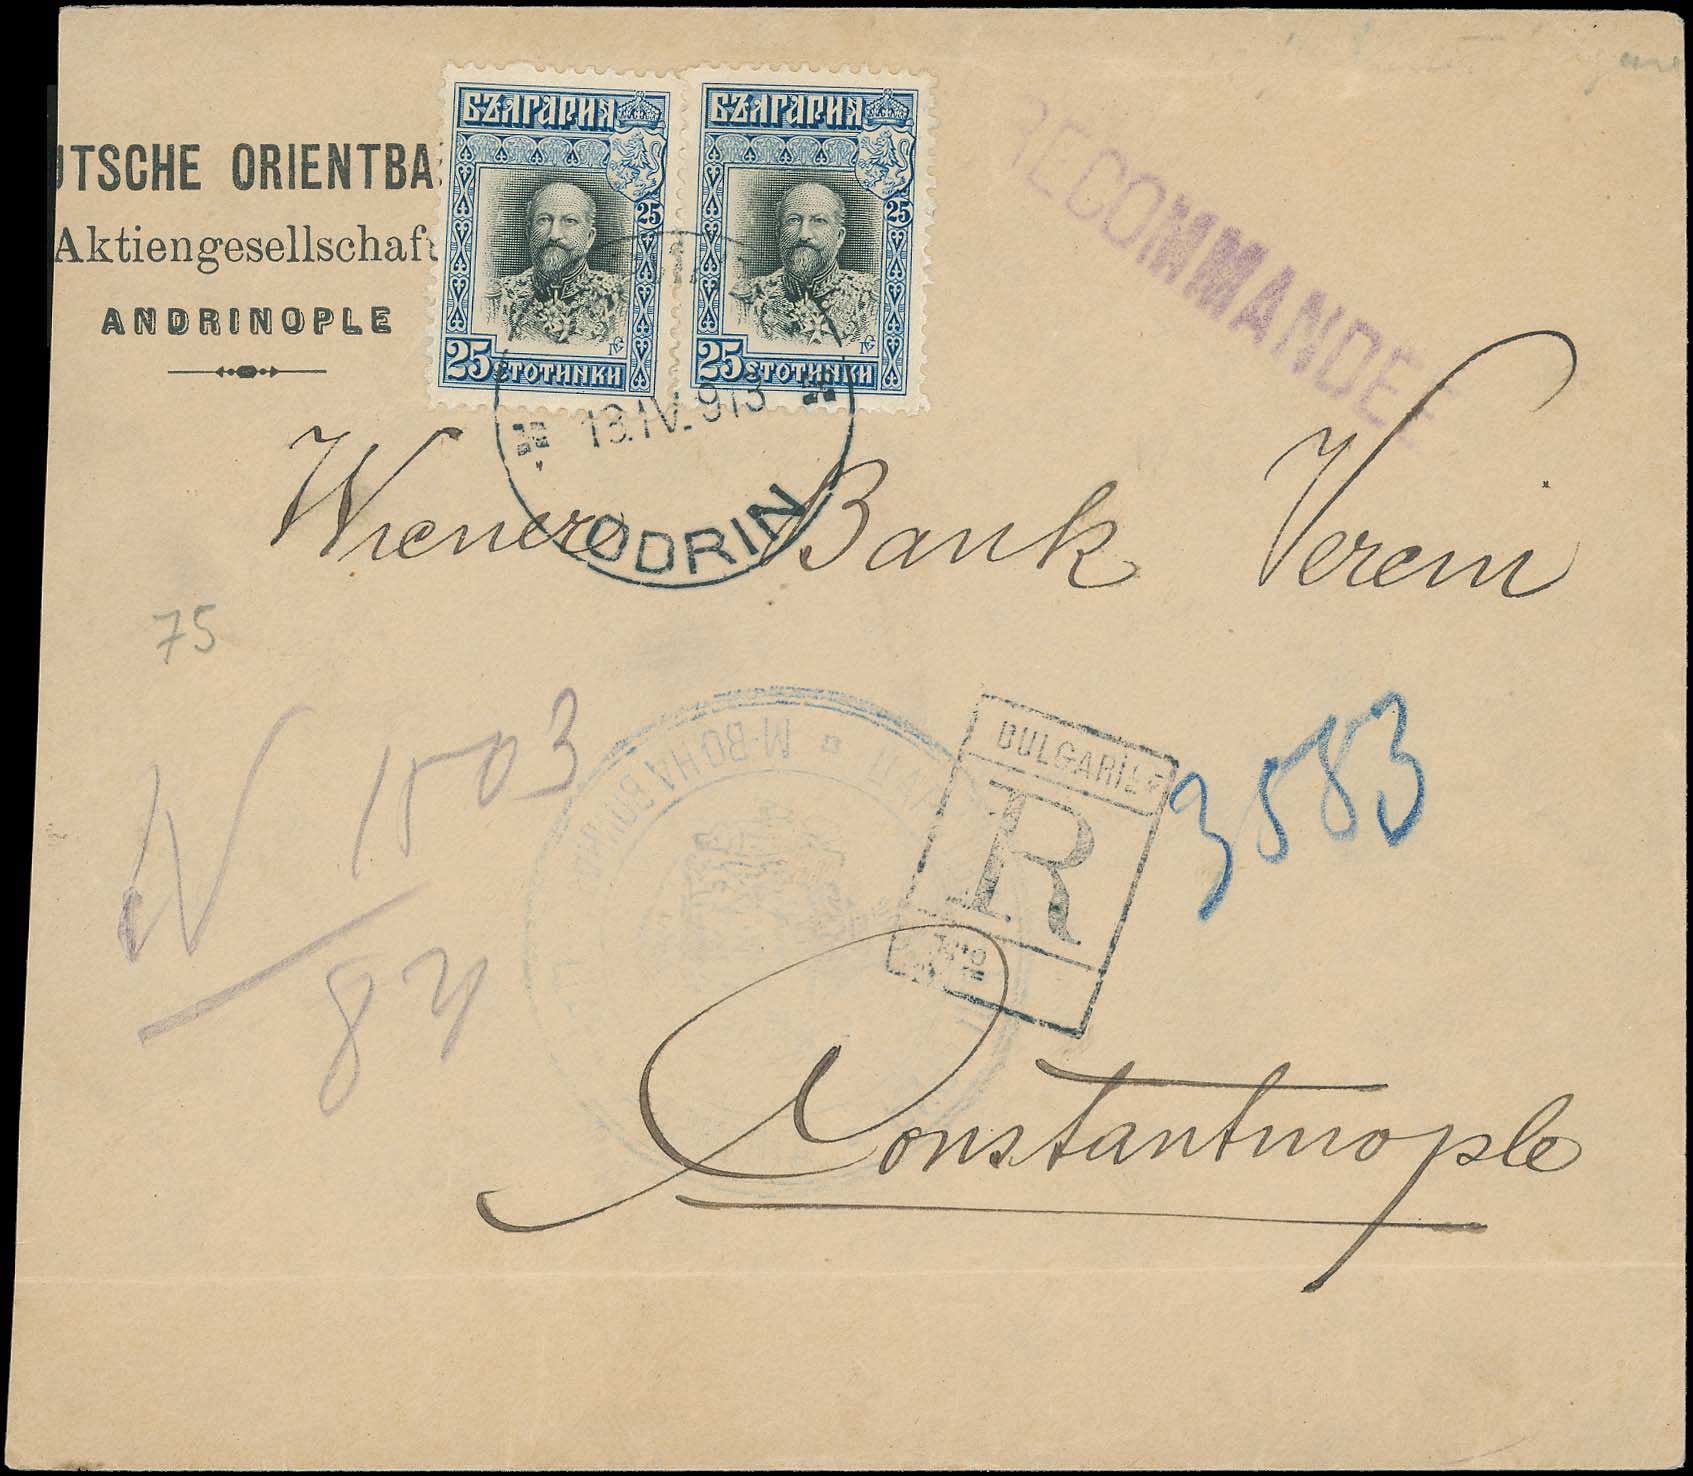 UTSCHE ORIENTBA
Aktiengesellschaft
ANDRINOPLE
БЪЛГАРИЯ
25
25 СТОТИНКИ
БЪЛГАРИЯ
25
25 СТОТИНКИ
RECOMMANDEE
13.IV.913
ODRIN
Wiener Bank Verein
75
N 1503
84
М-ВО НА ВОЙН
BULGARIE
R
3583
Constantinople